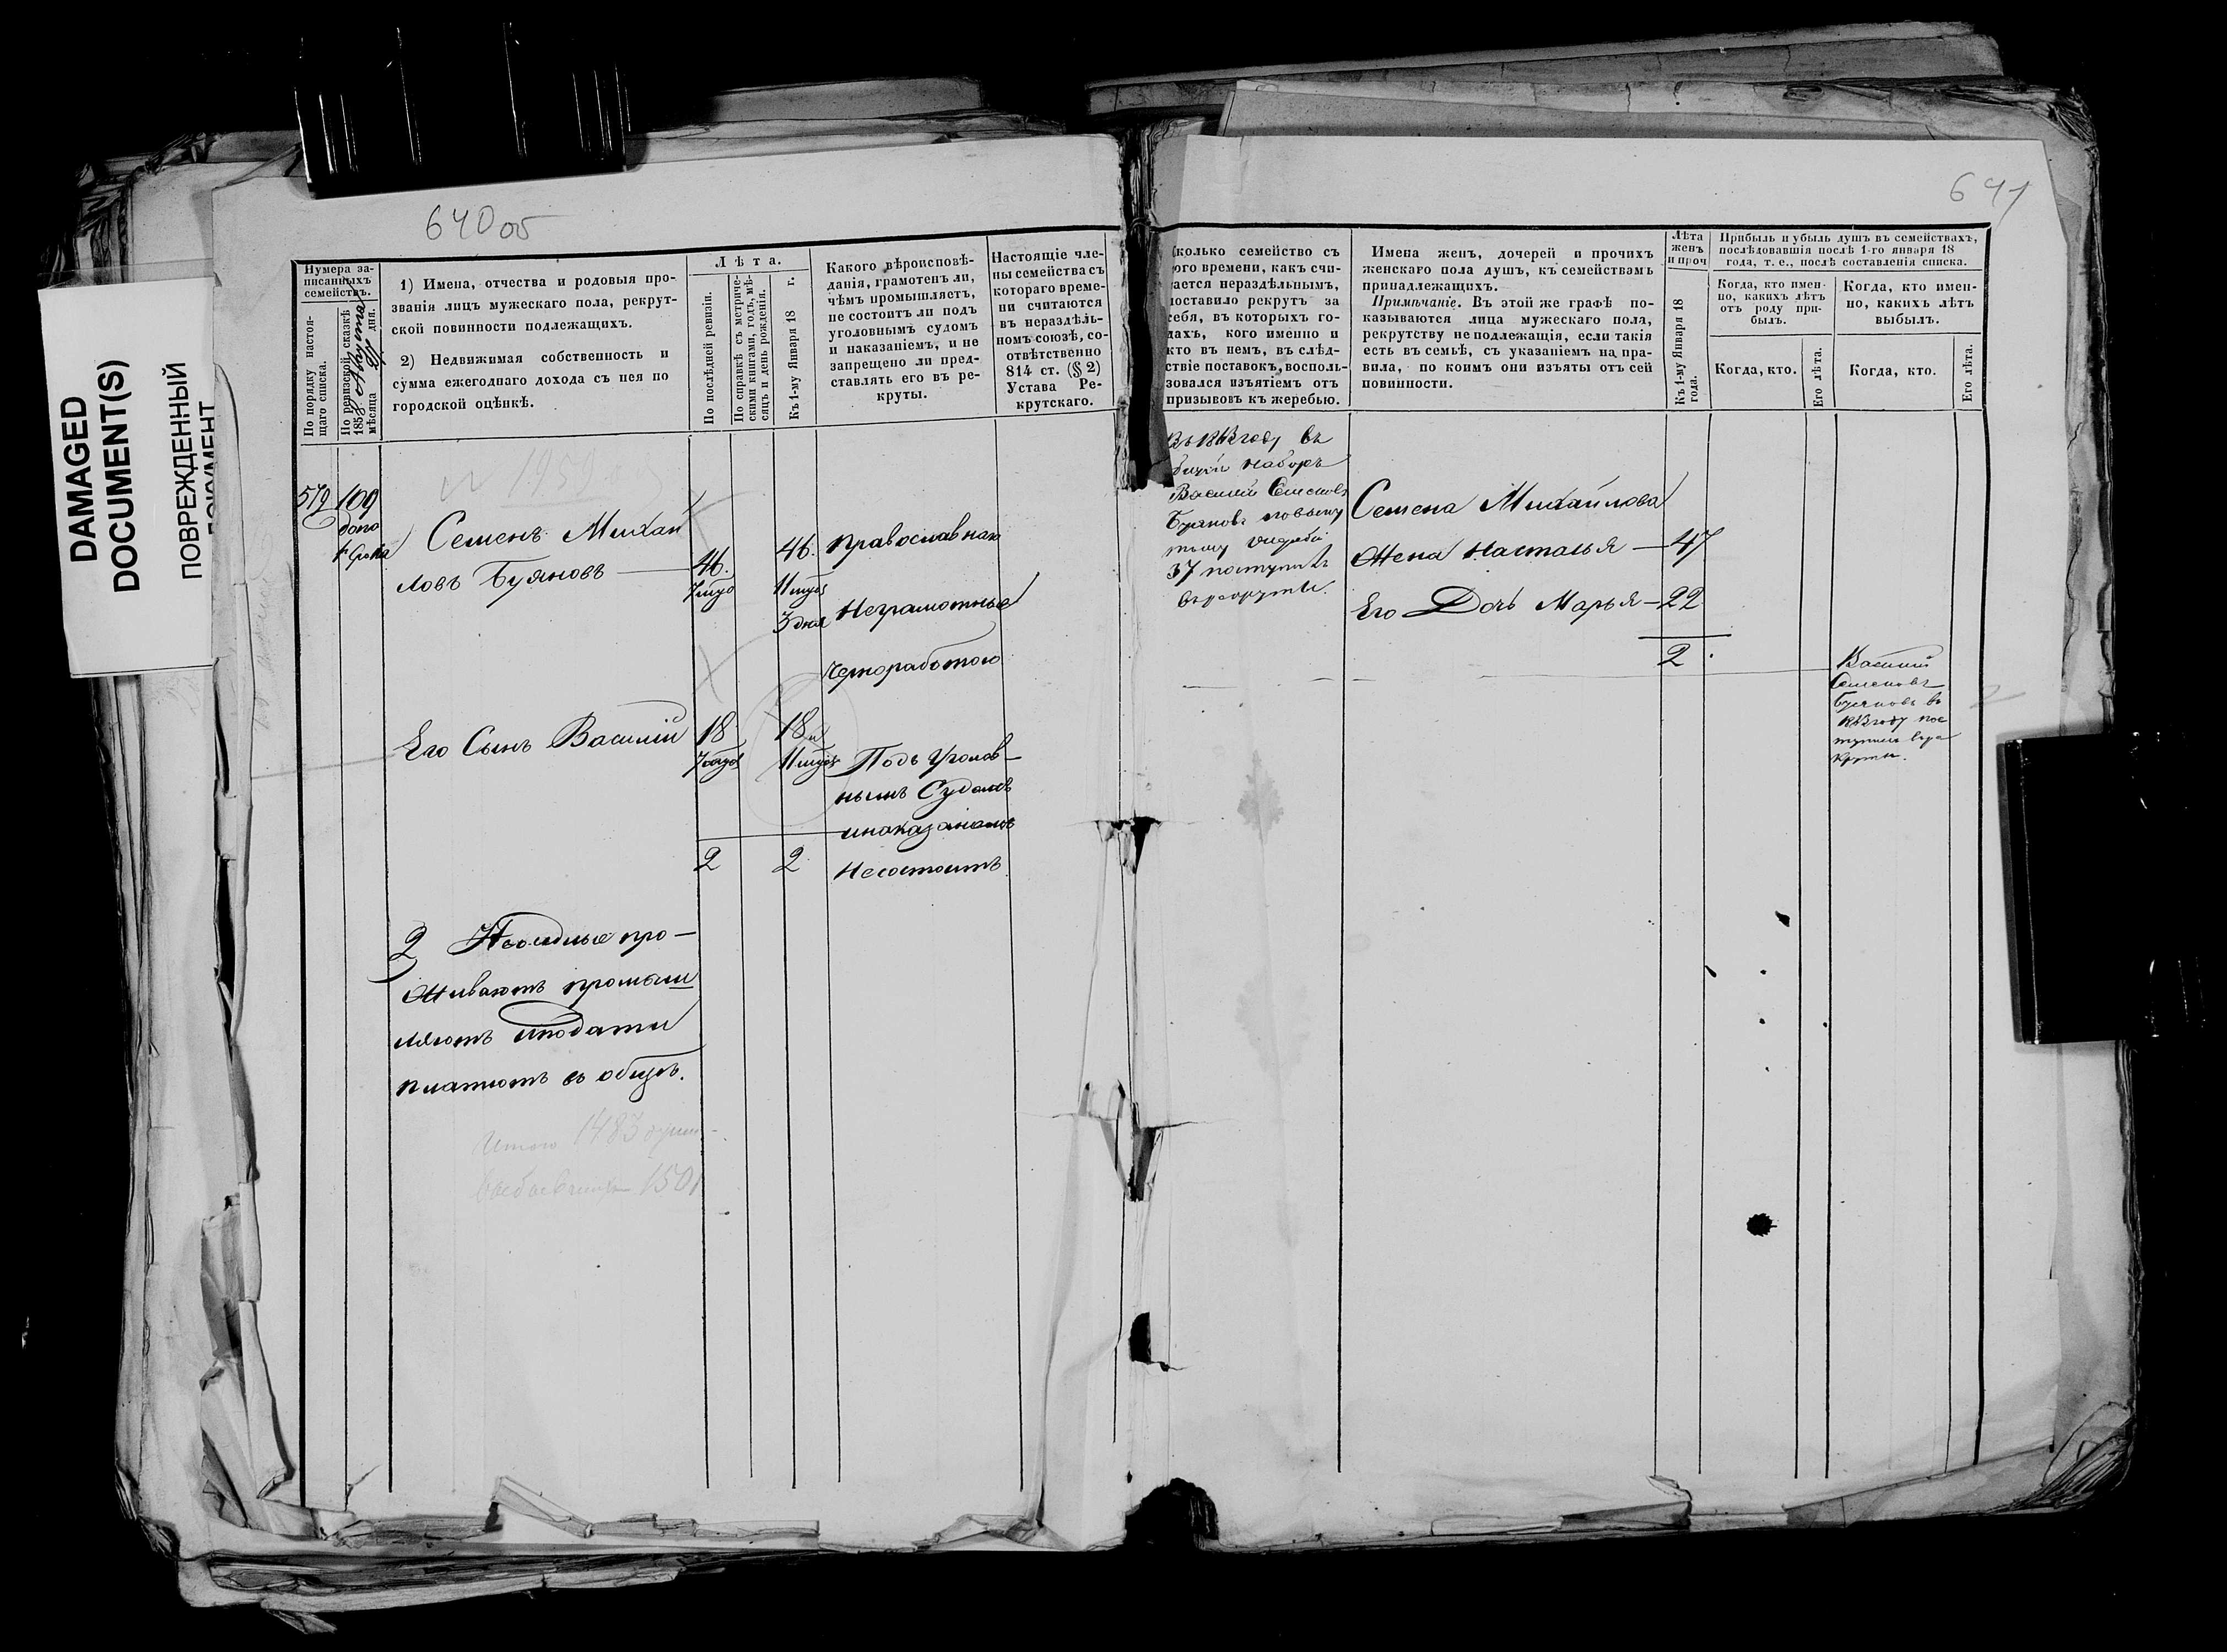 DAMAGED
DOCUMENT(S)
ПОВРЕЖДЕННЫЙ
ДОКУМЕНТ
640 об
Нумера за-
писанныхъ
семействъ.
По порядку настоя-
щаго списка.
По ревизской сказкѣ
185 мѣсяца дня.
1) Имена, отчества и родовыя про-
званія лицъ мужескаго пола, рекрут-
ской повинности подлежащихъ.
2) Недвижимая собственность и
сумма ежегоднаго дохода съ нея по
городской оцѣнкѣ.
Лѣта.
По послѣдней ревизіи.
По справкѣ съ метриче-
скими книгами, годъ, мѣ-
сяцъ и день рожденія.
Къ 1-му Января 18 г.
Какого вѣроисповѣ-
данія, грамотенъ ли,
чѣмъ промышляетъ,
не состоитъ ли подъ
уголовнымъ судомъ
и наказаніемъ, и не
запрещено ли пред-
ставлять его въ ре-
круты.
Настоящіе чле-
ны семейства съ
котораго време-
ни считаются
въ нераздѣль-
номъ союзѣ, со-
отвѣтственно
814 ст. (§ 2)
Устава Ре-
крутскаго.
579
109
Семенъ Михай
ловъ Буяновъ
46.
46.
3 дня
Православнаго
Неграмотные
Чернаработою
Его Сынъ Василій
18
18
Подъ Уголов-
нымъ Судомъ
инаказаніемъ
Несостоитъ
2
2
2
живаютъ промыш
ляютъ иподати
платютъ въ общѣ.
Итого 1483 души
1501
641
сколько семейство съ
ого времени, какъ счи-
ается нераздѣльнымъ,
поставило рекрутъ за
себя, въ которыхъ го-
дахъ, кого именно и
кто въ немъ, въ слѣд-
ствіе поставокъ, восполь-
зовался изъятіемъ отъ
призывовъ къ жеребью.
Имена женъ, дочерей и прочихъ
женскаго пола душъ, къ семействамъ
принадлежащихъ.
Примѣчаніе. Въ этой же графѣ по-
казываются лица мужескаго пола,
рекрутству не подлежащія, если такія
есть въ семьѣ, съ указаніемъ на пра-
вила, по коимъ они изъяты отъ сей
повинности.
Лѣта
женъ
и проч
Къ 1-му Января 18
года.
Прибыль и убыль душъ въ семействахъ,
послѣдовавшія послѣ 1-го января 18
года, т. е., послѣ составленія списка.
Когда, кто имен-
но, какихъ лѣтъ
отъ роду при-
былъ.
Когда, кто имен-
но, какихъ лѣтъ
выбылъ.
Когда, кто.
Его лѣта.
Когда, кто.
Его лѣта.
Въ 1863 году въ
наборъ
Василій Семеновъ
Буяновъ
37 поступилъ
врекруты.
Семена Михайлова
Жена Наталья — 47
Его Дочь Марья — 22
2
Василий
Семеновъ
Буяновъ въ
1863 году пос
тупилъ вре
круты.